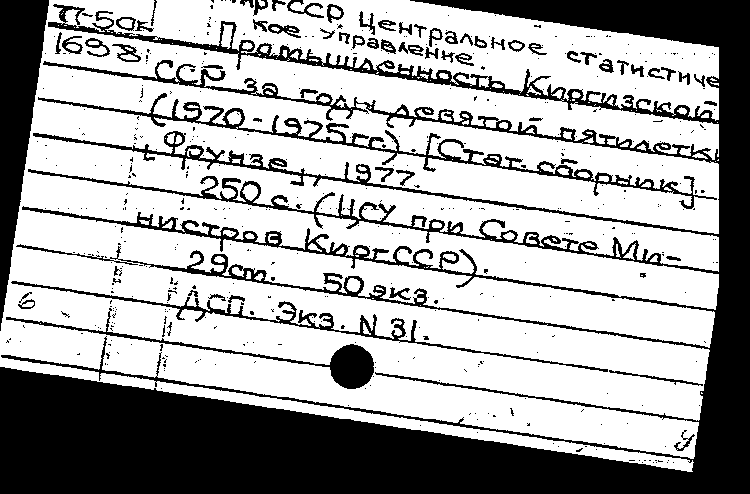 П-50к КиргССР Центральное статистиче
кое управление.
1698 Промышленность Киргизской
ССР за годы девятой пятилетки
(1970-1975гг). [Стат. сборник].
[Фрунзе], 1977.
250 с. (ЦСУ при Совете Ми-
нистров КиргССР).
29ст. 50 экз.
6 ДСП. Экз. N 31.
у